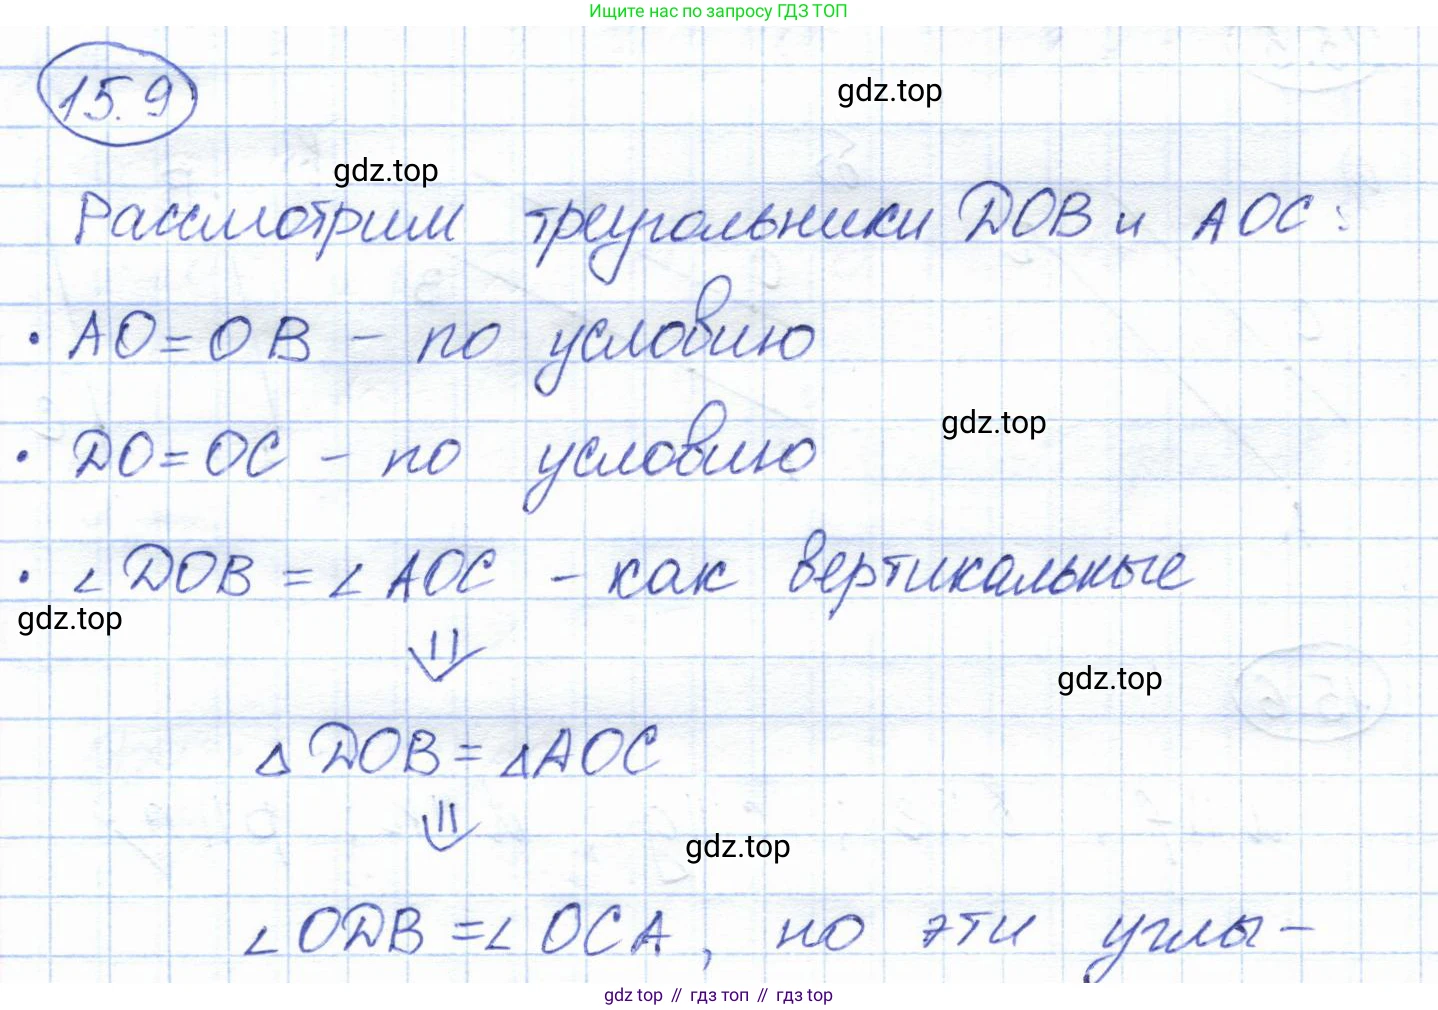 Ищите нас по запросу ГДЗ ТОП
15.9
gdz.top
gdz.top
Рассмотрим треугольники DOB и AOC:
• AO = OB – по условию
gdz.top
• DO = OC – по условию
• ∠ DOB = ∠ AOC – как вертикальные
gdz.top
⇓
gdz.top
△ DOB = △ AOC
⇓
gdz.top
∠ ODB = ∠ OCA, но эти углы –
gdz top // гдз топ // гдз top